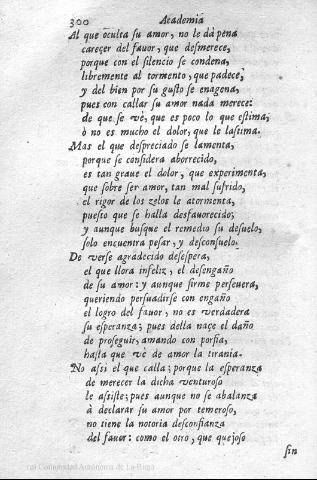 300 Academia
Al que oculta su amor, no le dà pena
careçer del favor, que desmerece,
porque con el silencio se condena,
libremente al tormento, que padece,
y del bien por su gusto se enagena,
pues con callar su amor nada merece:
de que se vè, que es poco lo que estima,
ò no es mucho el dolor, que le lastima.
Mas el que despreciado se lamenta,
porque se considera aborrecido,
es tan graue el dolor, que experimenta,
que sobre ser amor, tan mal sufrido,
el rigor de los zelos le atormenta,
puesto que se halla desfauorecido;
y aunque busque el remedio su desuelo,
solo encuentra pesar, y desconsuelo.
De verse agradecido desespera,
el que llora infeliz, el desengaño
de su amor: y aunque firme perseuera,
queriendo persuadirse con engaño
el logro del fauor, no es verdadera
su esperanza; pues della naçe el daño
de proseguir, amando con porfia,
hasta que vè de amor la tirania.
No assi el que calla; porque la esperanza
de merecer la dicha venturoso
le assiste; pues aunque no se abalanza
à declarar su amor por temeroso,
no tiene la notoria desconfianza
del fauor: como el otro, que quejoso
sin
(c) Comunidad Autónoma de La Rioja